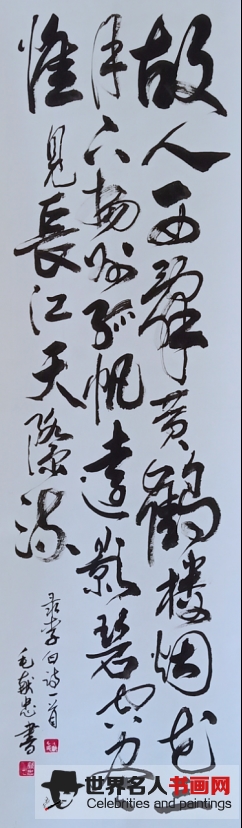 故人西辞黄鶴楼烟花三
月下揚州孤帆遠影碧空尽
惟見長江天際流
录李白诗一首
毛献忠書
世界名人书画网
Celebrities and paintings